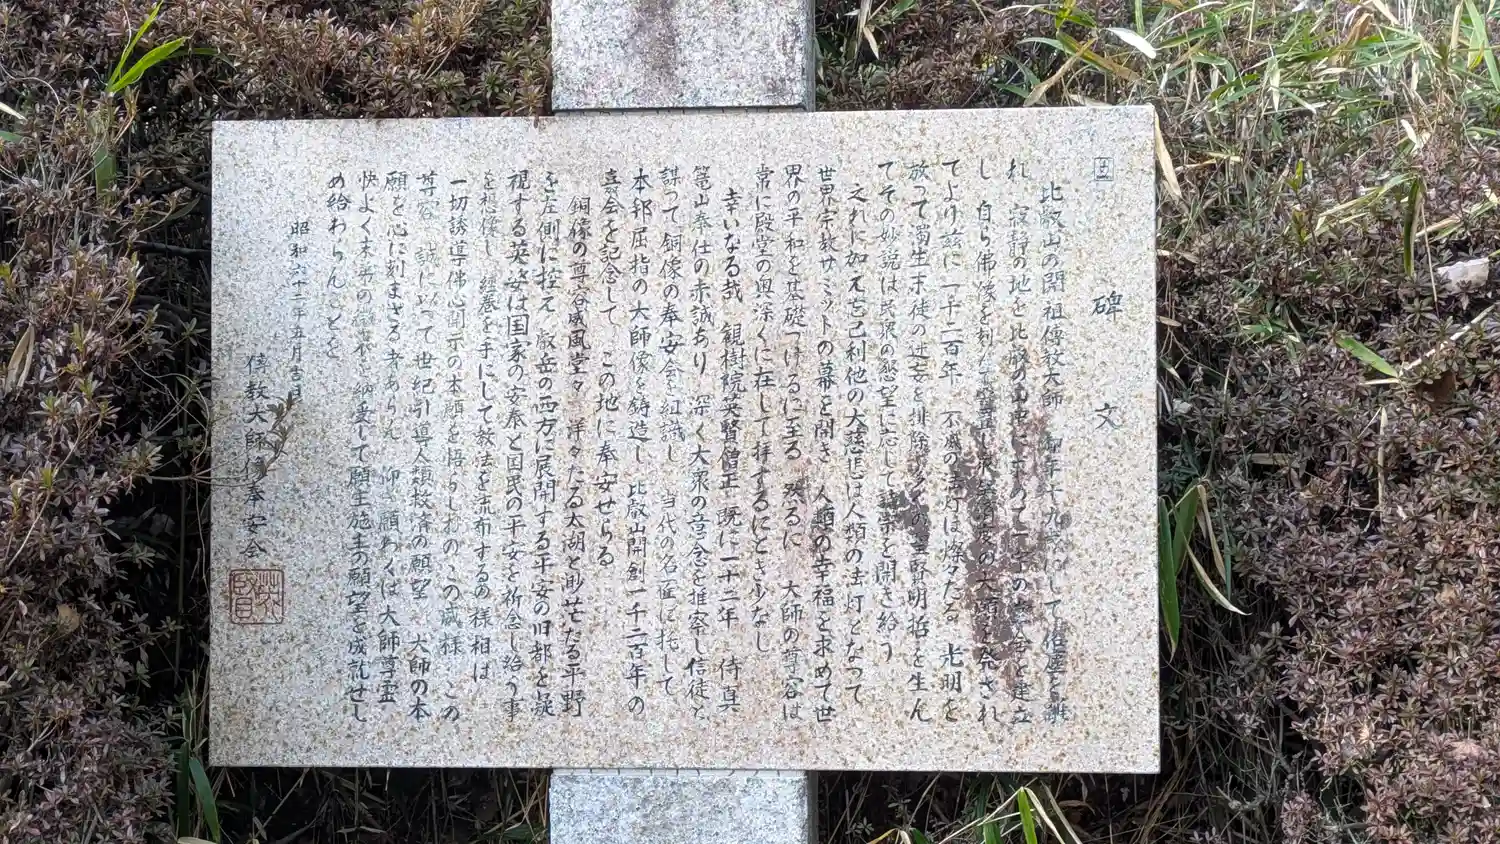 碑文
比叡山の開祖傳教大師 御年十九歳にして俗塵を離
れ 寂静の地を比叡の山中に上の草舎を建立
し 自ら佛像を刻 の大願を発され
てより茲に一千二百年 不滅の法灯は燦々たる 光明を
放って濁生末徒の迷妄を排除 賢明哲を生ん
でその妙説は民衆の懇望に応して諸宗を開き給う
之れに加え忘己利他の大慈悲は人類の法灯となって
世界宗教サミットの幕を開き 人類の幸福を求めて世
界の平和を基礎つけるに至る 然るに 大師の尊容は
常に殿堂の奥深くに在して拝するにとき少なし
幸いなる哉 観樹院英賢僧正 既に二十二年 侍真
篭山奉仕の赤誠あり 深く大衆の芳念を推察し信徒と
謀って銅像の奉安会を組識し 当代の名匠に托して
本邦屈指の大師像を鋳造し 比叡山開創一千二百年の
喜会を記念して この地に奉安せらる
銅像の尊容威風堂々 洋々たる太湖と眇茫たる平野
を左側に控え 叡岳の西方に展開する平安の旧都を凝
視する英姿は国家の安泰と国民の平安を祈念し給う事
を想像し 経巻を手にして教法を流布するの様相は
一切誘導佛心開示の本願を悟らしむの この威様 この
尊容 誠に以って世紀引導人類救済の願望 大師の本
願を心に刻まざる者あらん 仰き願わくは大師尊霊
快よく末弟の 納受して願主施主の願望を成就せし
め給わらんことを
昭和六十二年五月吉日
傳教大師像奉安会